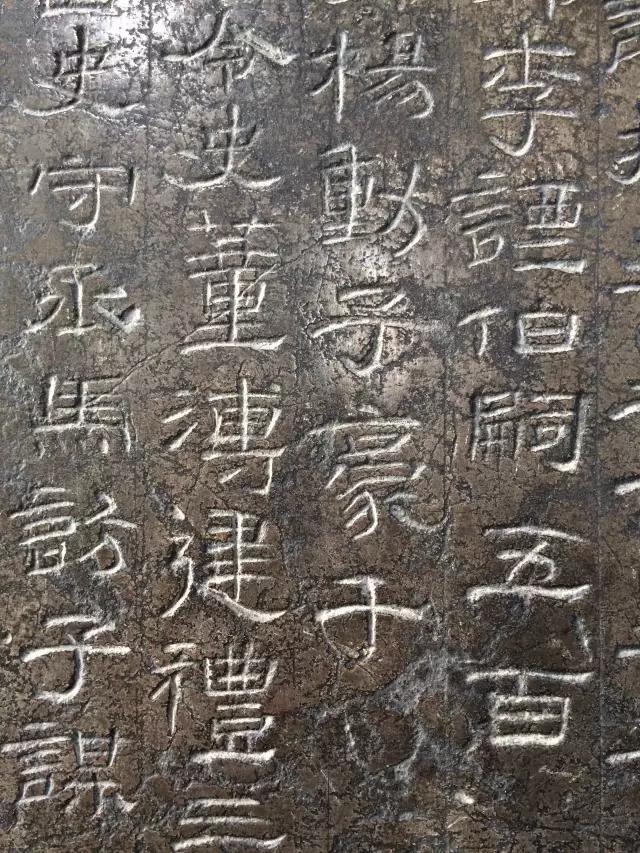 李諲伯嗣五百
楊動子豪千
令史董溥建禮三
史守丞馬訪子謀